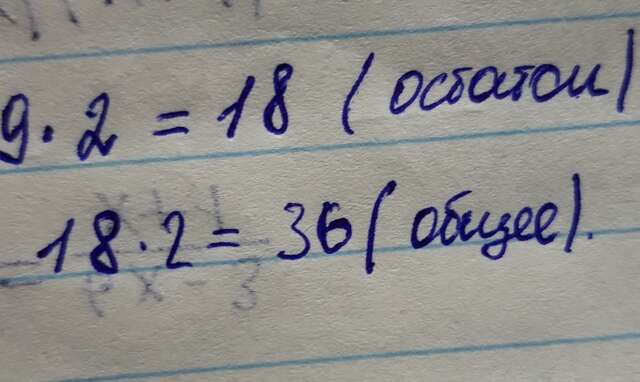 9·2=18 (остаток)
18·2=36 (общее).